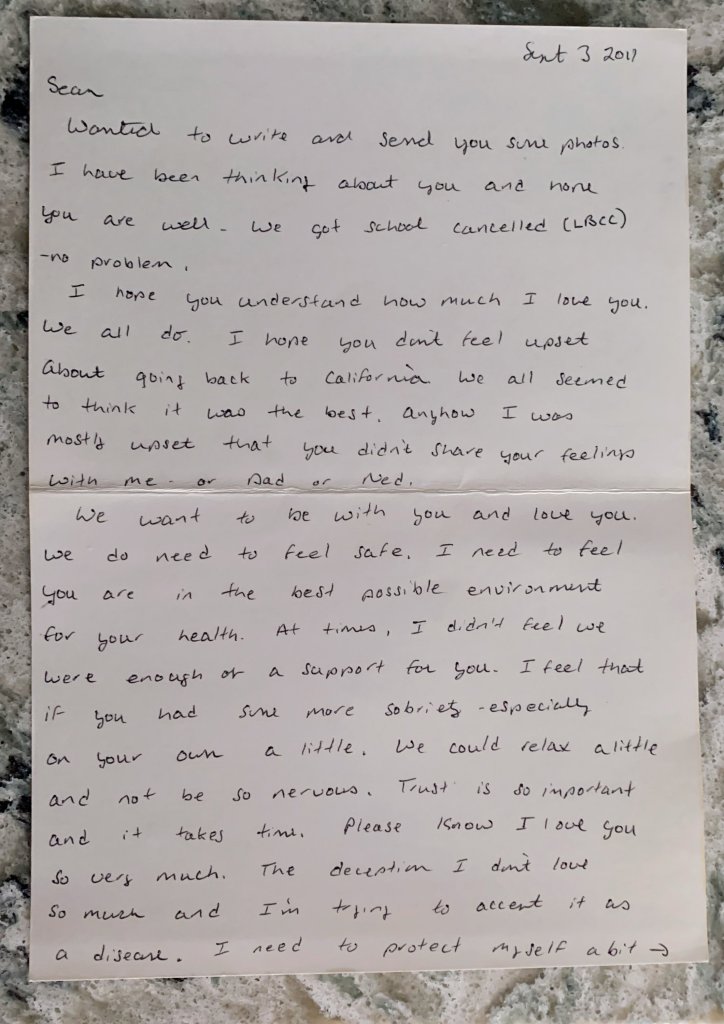 Sept 3 2017
Sean
Wanted to write and send you some photos.
I have been thinking about you and hope
you are well - We got school cancelled (LBCC)
-no problem.
I hope you understand how much I love you.
We all do. I hope you don't feel upset
About going back to California. We all seemed
to think it was the best. Anyhow I was
mostly upset that you didn't share your feelings
with me - or Dad or Ned.
We want to be with you and love you.
We do need to feel safe. I need to feel
you are in the best possible environment
for your health. At times, I didn't feel we
were enough of a support for you. I feel that
if you had some more sobriety - especially
on your own a little. We could relax a little
and not be so nervous. Trust is so important
and it takes time. Please Know I love you
so very much. The deception I don't love
so much and I'm trying to accept it as
a disease. I need to protect myself a bit →